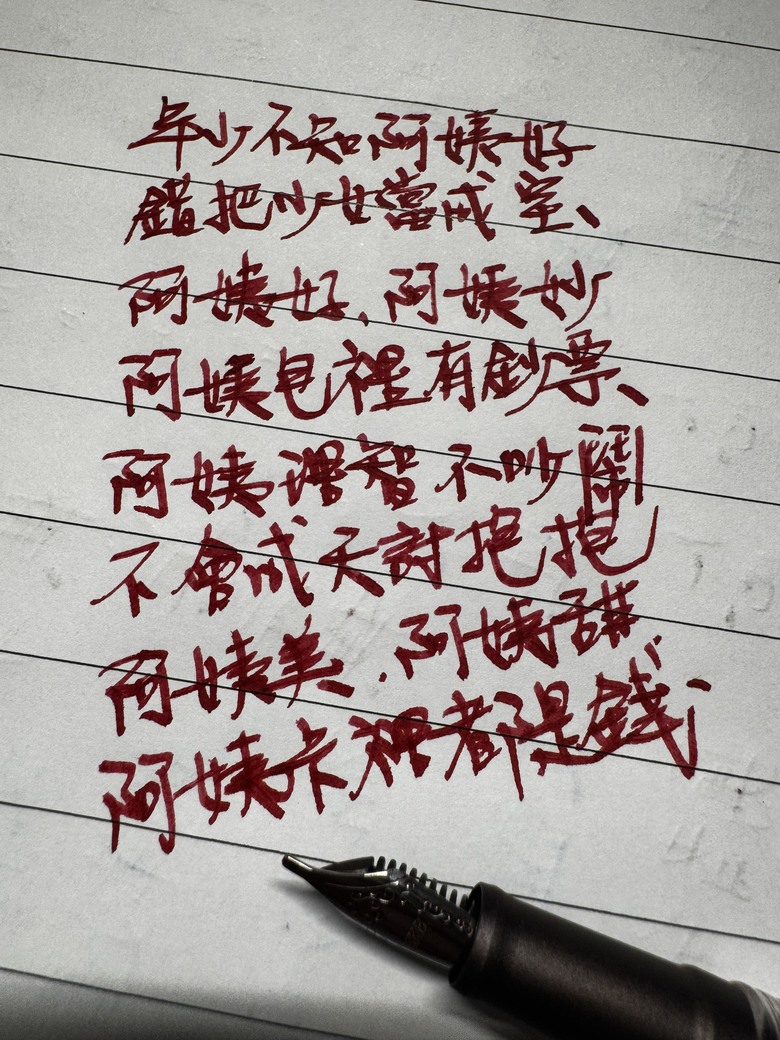 年少不知阿姨好
錯把少女當成宝、
阿姨好、阿姨妙
阿姨包裡有鈔票、
阿姨理智不吵鬧
不會成天討抱抱
阿姨美、阿姨甜
阿姨卡裡都是錢